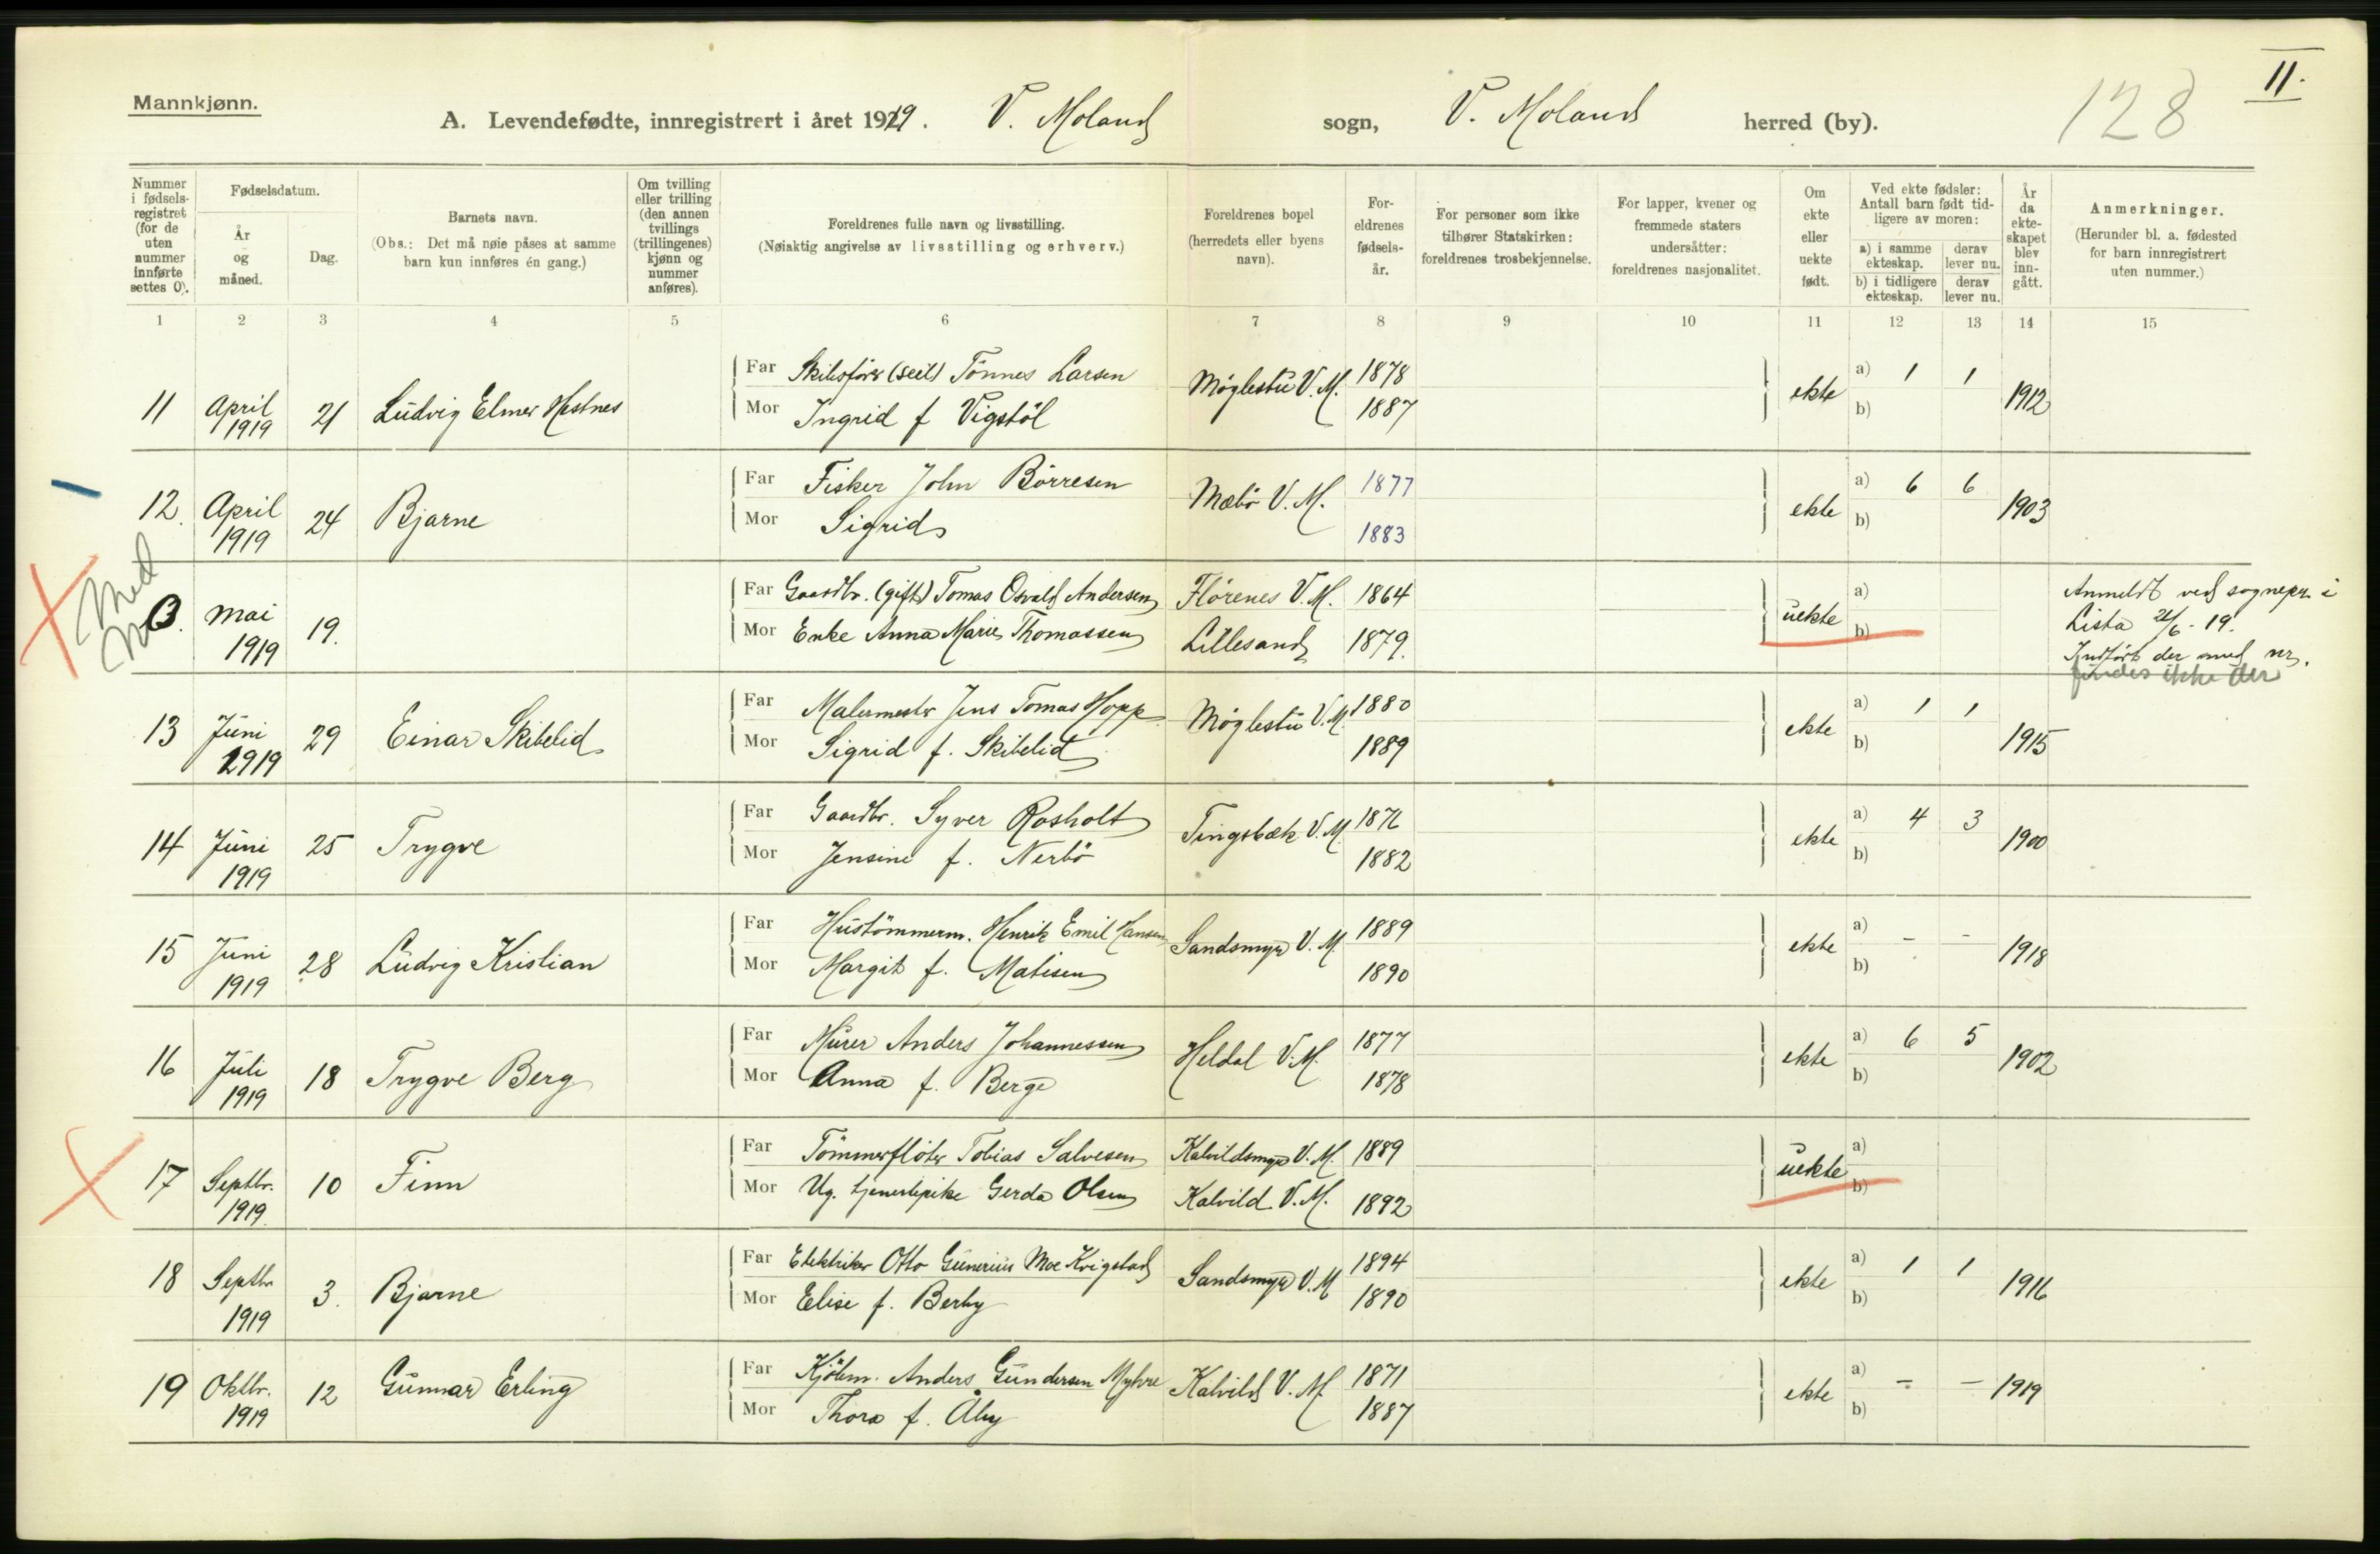 Mannkjønn.
II.
128
A. Levendefødte, innregistrert i året 1919. V. Moland sogn, V. Moland herred (by).
Nummer i fødselsregistret (for de uten nummer innførte settes 0).
Fødselsdatum.
År og måned.
Dag.
Barnets navn.
(Obs.: Det må nøie påses at samme barn kun innføres én gang.)
Om tvilling eller trilling (den annen tvillings (trillingenes) kjønn og nummer anføres).
Foreldrenes fulle navn og livsstilling.
(Nøiaktig angivelse av livsstilling og erhverv.)
Foreldrenes bopel (herredets eller byens navn).
Foreldrenes fødselsår.
For personer som ikke tilhører Statskirken: foreldrenes trosbekjennelse.
For lapper, kvener og fremmede staters undersåtter: foreldrenes nasjonalitet.
Om ekte eller uekte født.
Ved ekte fødsler: Antall barn født tidligere av moren:
a) i samme ekteskap. derav lever nu.
b) i tidligere ekteskap. derav lever nu.
År da ekteskapet blev inngått.
Anmerkninger.
(Herunder bl. a. fødested for barn innregistrert uten nummer.)
1 2 3 4 5 6 7 8 9 10 11 12 13 14 15
11 April 1919 21 Ludvig Elmer Hestnes
Far Skibsfører (seil) Tönnes Larsen Møglestu V. M. 1878 ekte a) 1 1 1912
Mor Ingrid f Vigstöl 1887 b)
12. April 1919 24 Bjarne
Far Fisker John Börresen Mæbö V. M. 1877 ekte a) 6 6 1903
Mor Sigrid 1883 b)
Med
0. Mai 1919 19.
Far Gaardbr. (gift) Tomas Osvald Andersen Flörenes V. M. 1864 uekte a)
Mor Enke Anna Marie Thomassen Lillesand 1879. b)
Anmeldt ved sognepr. i
Lista 21/6 - 19.
Indført der med nr.
findes ikke der
13 Juni 1919 29 Einar Skibelid
Far Malermester Jens Tomas Hopp Møglestu V. M. 1880 ekte a) 1 1 1915
Mor Sigrid f. Skibelid 1889 b)
14 Juni 1919 25 Trygve
Far Gaardbr. Syver Rosholt Tingsbæk V. M. 1876 ekte a) 4 3 1900
Mor Jensine f. Nerbö 1882 b)
15 Juni 1919 28 Ludvig Kristian
Far Hustömmerm. Henrik Emil Hansen Sandsmyr V. M. 1889 ekte a) - - 1918
Mor Margit f. Matisen 1890 b)
16 Juli 1919 18 Trygve Berg
Far Murer Anders Johannessen Heldal V. M. 1877 ekte a) 6 5 1902
Mor Anna f. Berge 1878 b)
17 Septbr. 1919 10 Finn
Far Tömmerflöter Tobias Salvesen Kalvildsmyr V. M. 1889 uekte a)
Mor Ug. tjenestepike Gerda Olsen Kalvild V. M. 1892 b)
18 Septbr 1919 3. Bjarne
Far Elektriker Otto Gunerius Moe Kvigstad Sandsmyr V. M 1894 ekte a) 1 1 1916
Mor Elise f. Berby 1890 b)
19 Oktbr. 1919 12 Gunnar Erling
Far Kjöbm. Anders Gundersen Myhre Kalvild V. M 1871 ekte a) - - 1919
Mor Thora f. Åby 1887 b)